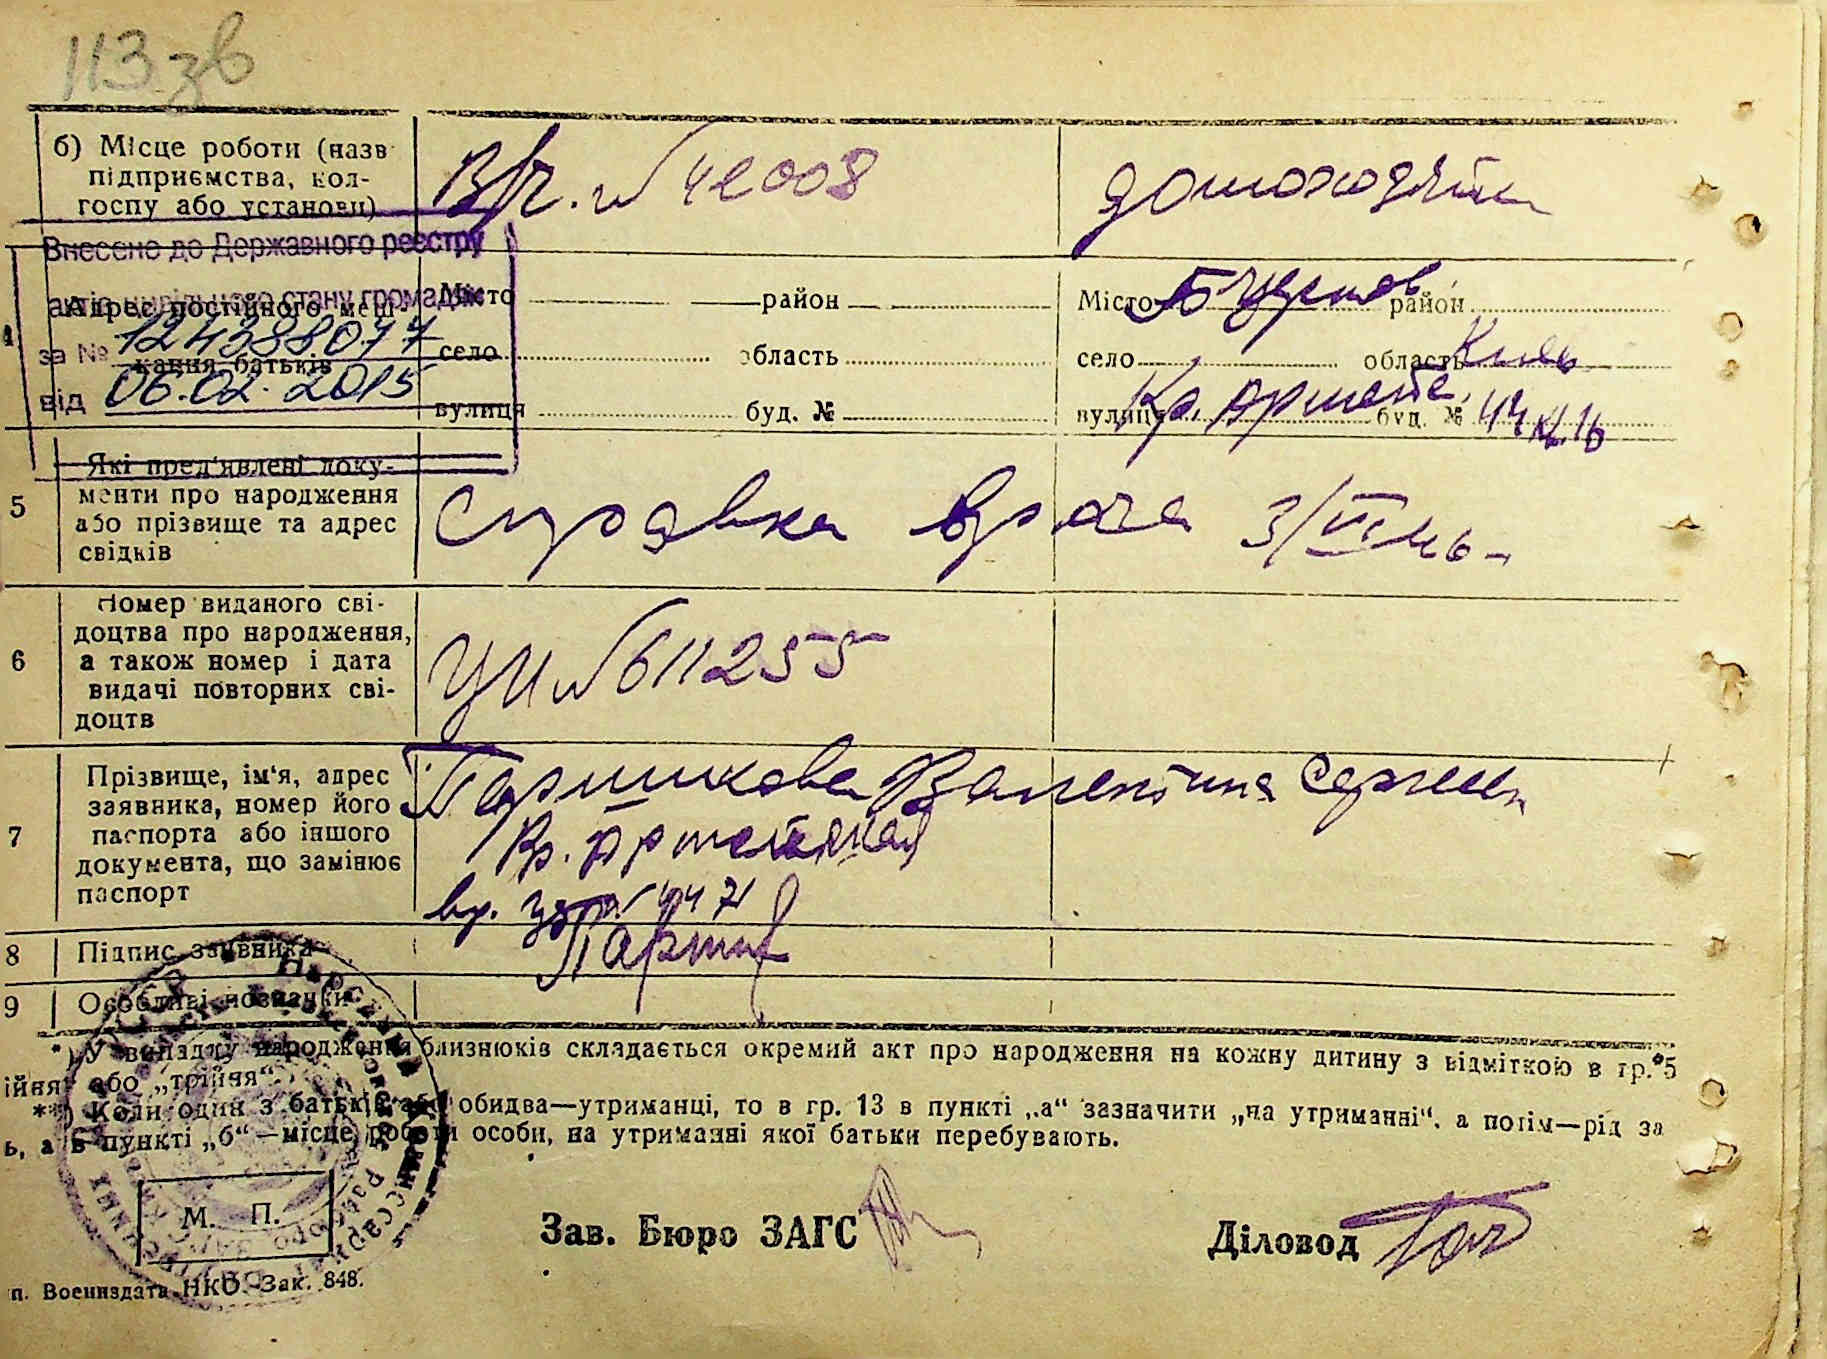 113 зв
б) Місце роботи (назв підприємства, колгоспу або установи)
В/ч. № 42008
домохозяйк
Внесено до Державного реєстру
актів цивільного стану громадян
за № 124388077
від 06.02.2015
4
Адрес постійного мешкання батьків
Місто район
село область
вулиця буд. №
Місто Б Церков район
село область Київ
вулиця Кр. Армейс буд. № 44 кв. 16
5
Які пред'явлені документи про народження або прізвище та адрес свідків
Справка врача 3/VI 46
6
Номер виданого свідоцтва про народження, а також номер і дата видачі повторних свідоцтв
УИ № 611255
7
Прізвище, ім'я, адрес заявника, номер його паспорта або іншого документа, що замінює паспорт
Валентина Сергеевн
Кр. Армейская
вр. уд. 4471
8
Підпис заявника
9
Особливі познанки
*) У випадку народження близнюків складається окремий акт про народження на кожну дитину з відміткою в гр. 5
ійня або „трійня"
**) Коли один з батьків або обидва—утриманці, то в гр. 13 в пункті „а" зазначити „на утриманні", а потім—рід за
ь, а в пункті „б"—місце роботи особи, на утриманні якої батьки перебувають.
М. П.
Зав. Бюро ЗАГС
Діловод
п. Воениздата НКО. Зак. 848.